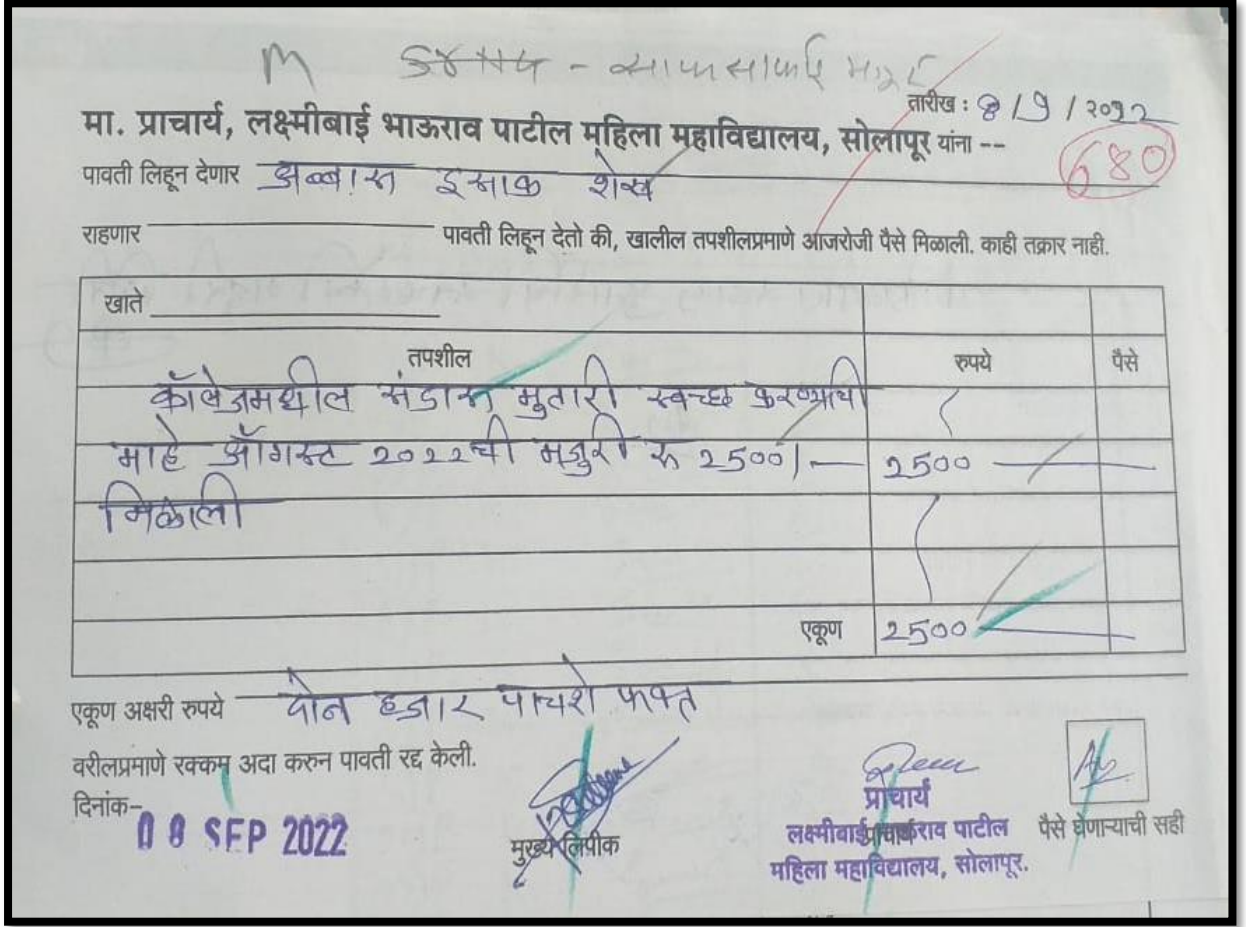 साफसफाई
तारीख : 8 / 9 / २०२२
मा. प्राचार्य, लक्ष्मीबाई भाऊराव पाटील महिला महाविद्यालय, सोलापूर यांना --
680
पावती लिहून देणार अब्बास इसाक शेख
राहणार पावती लिहून देतो की, खालील तपशीलप्रमाणे आजरोजी पैसे मिळाली. काही तक्रार नाही.
खाते
तपशील रुपये पैसे
कॉलेजमधील संडास मुतारी स्वच्छ करण्याची
माहे ऑगस्ट २०२२ची मजुरी रु 2500/- 2500
मिळाली
एकूण 2500
एकूण अक्षरी रुपये दोन हजार पाचशे फक्त
वरीलप्रमाणे रक्कम अदा करुन पावती रद्द केली.
दिनांक-
08 SEP 2022
मुख्य लिपीक
प्राचार्य
लक्ष्मीबाई भाऊराव पाटील
महिला महाविद्यालय, सोलापूर.
पैसे घेणाऱ्याची सही